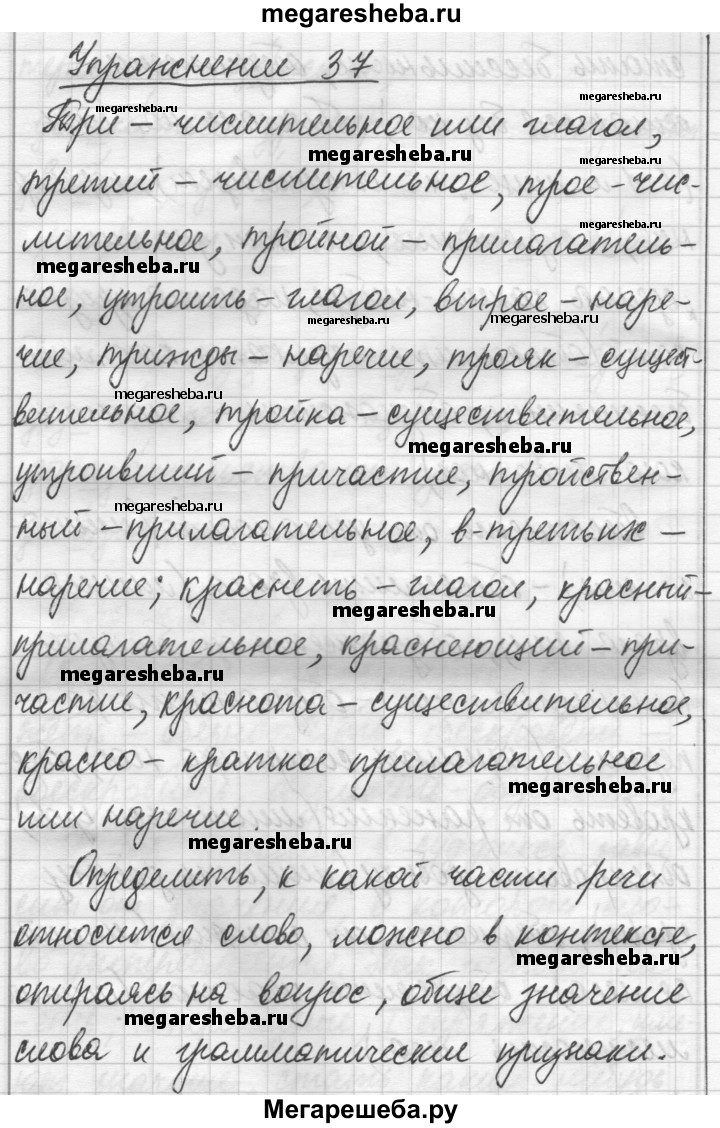 megaresheba.ru
Упражнение 37
megaresheba.ru megaresheba.ru
Три – числительное или глагол,
megaresheba.ru megaresheba.ru
третий – числительное, трое – чис-
megaresheba.ru
лительное, тройной – прилагатель-
megaresheba.ru
ное, утроить – глагол, втрое – наре-
megaresheba.ru megaresheba.ru
чие, трижды – наречие, трояк – сущест-
megaresheba.ru
вительное, тройка – существительное,
megaresheba.ru
утроивший – причастие, тройствен-
megaresheba.ru
ный – прилагательное, в-третьих –
наречие; краснеть – глагол, красный –
megaresheba.ru
прилагательное, краснеющий – при-
megaresheba.ru
частие, краснота – существительное,
красно – краткое прилагательное
megaresheba.ru
или наречие.
megaresheba.ru
Определить, к какой части речи
относится слово, можно в контексте,
megaresheba.ru
опираясь на вопрос, общее значение
megaresheba.ru
слова и грамматические признаки.
Мегарешеба.ру